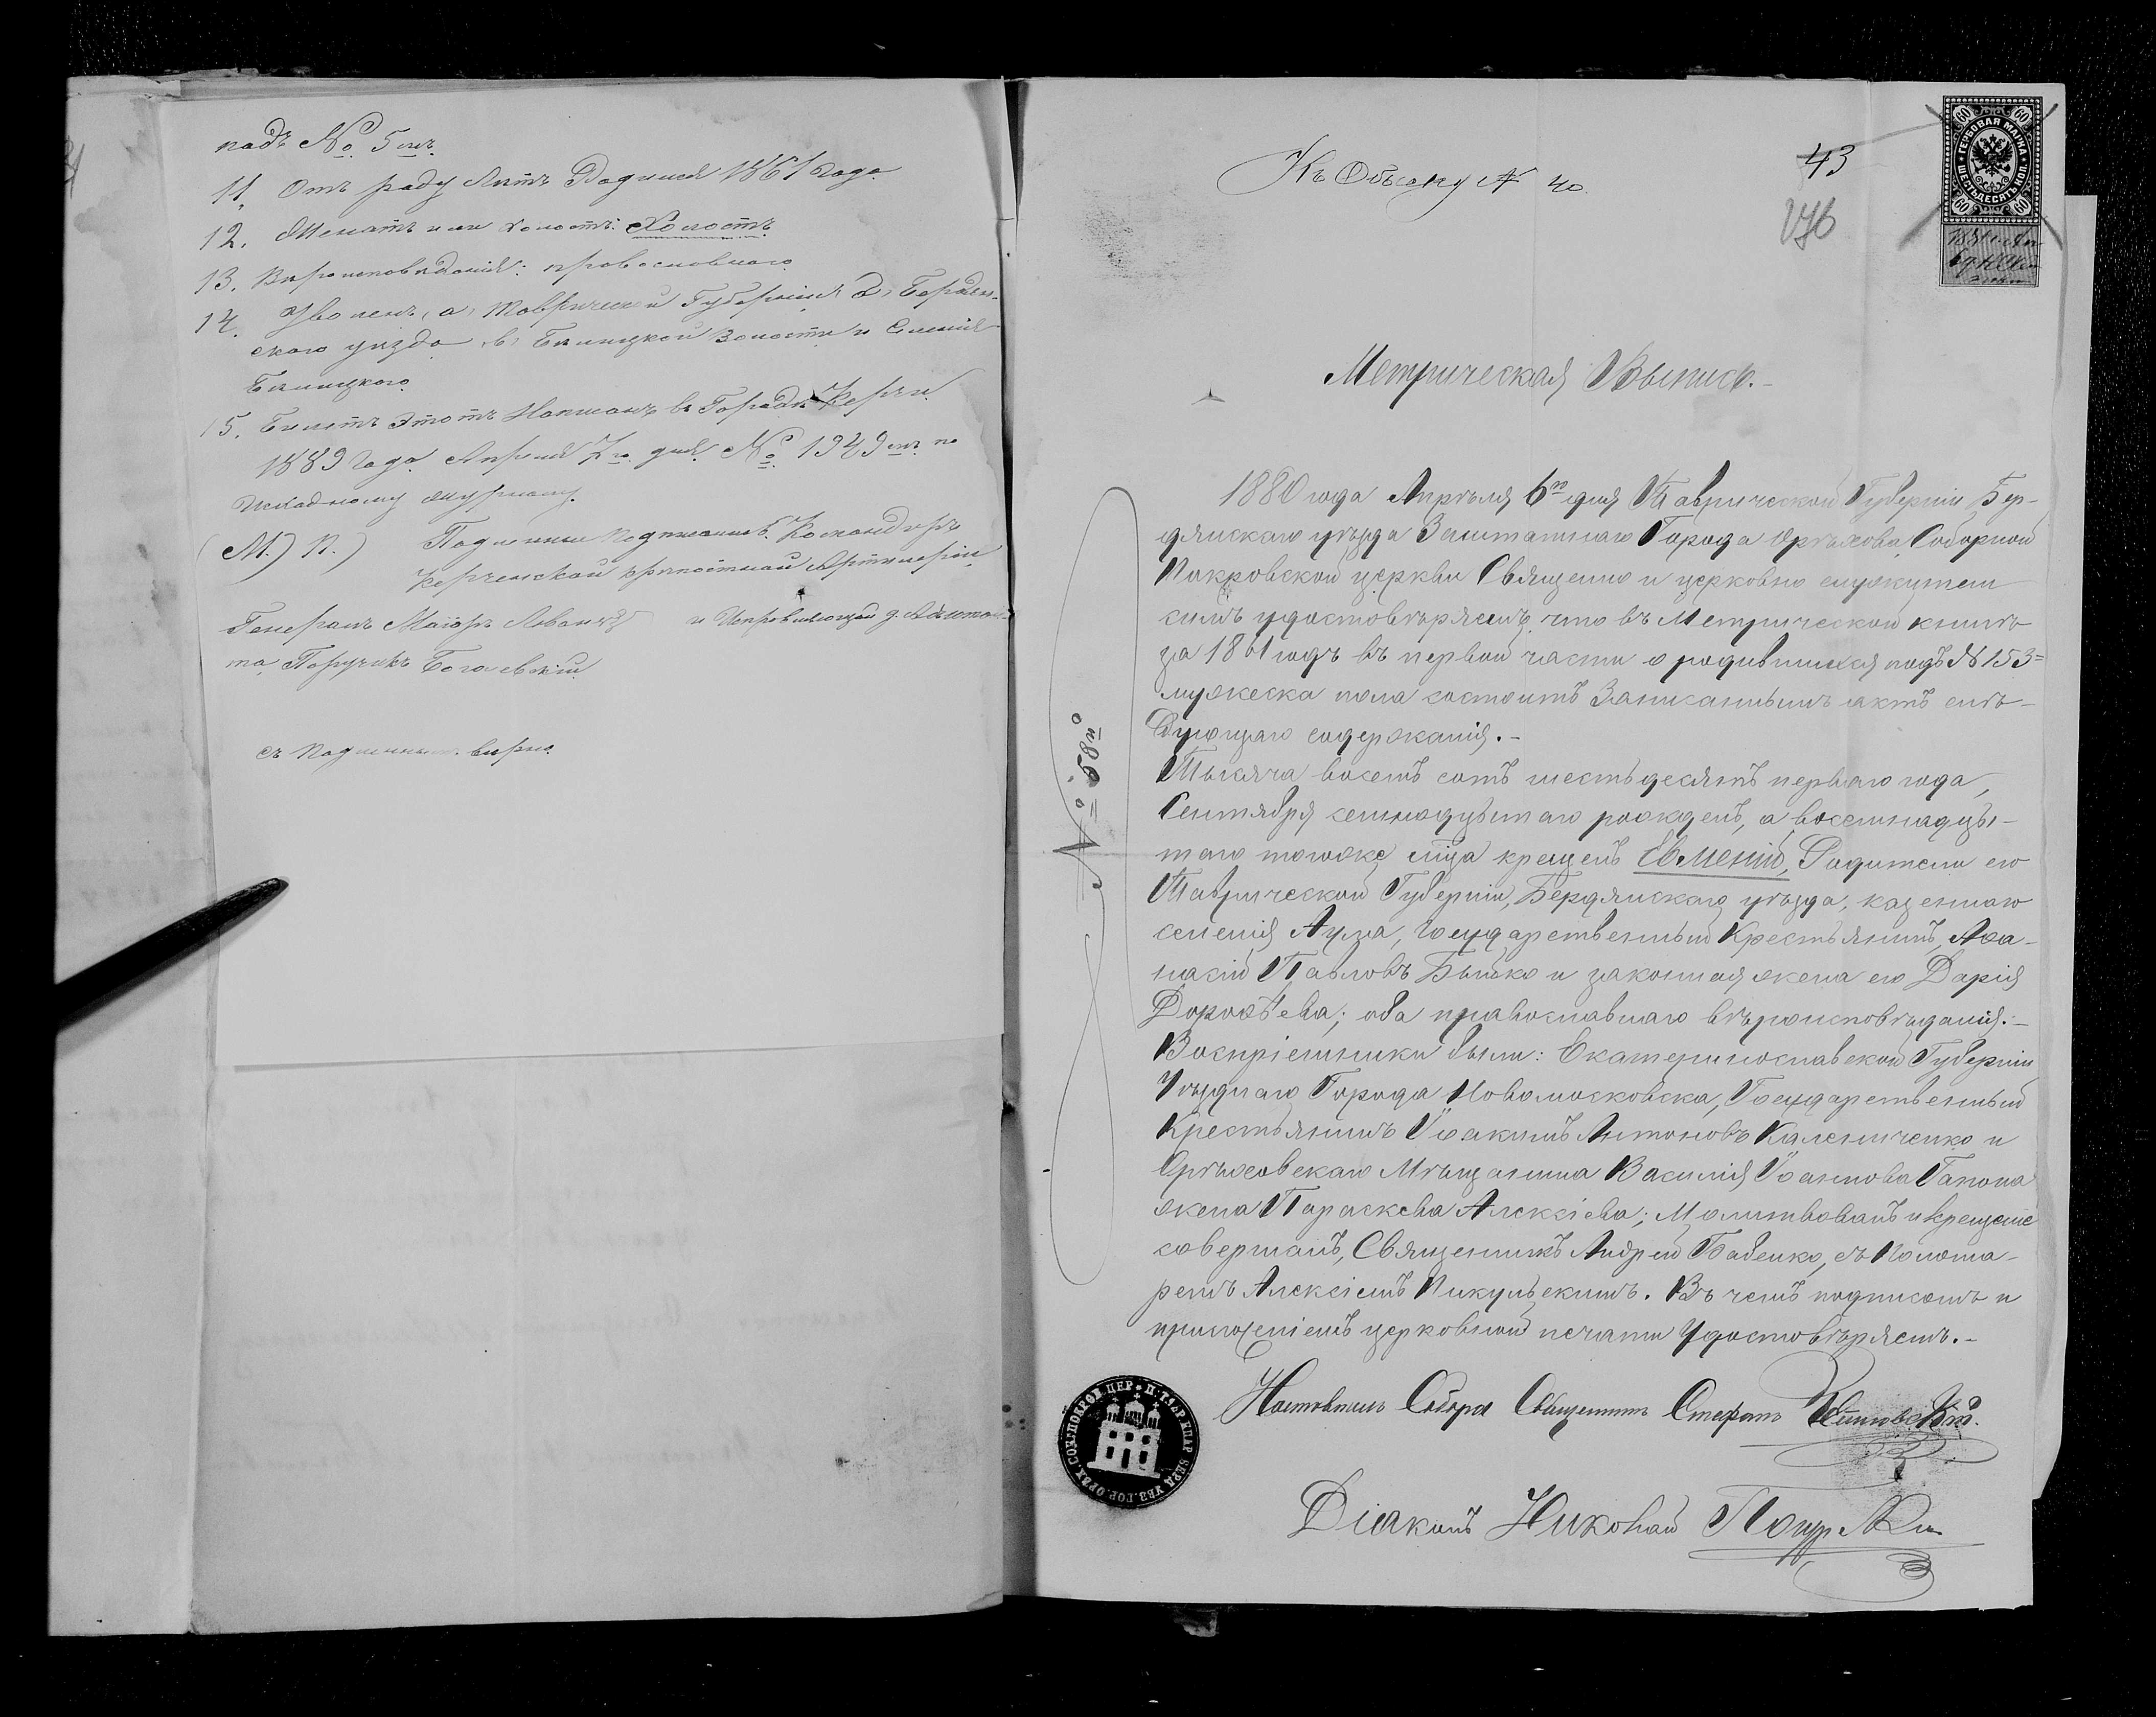 подъ № 5мъ.
11. Отъ роду лѣтъ Родился 1861 года.
12. Женатъ или холостъ: Холостъ.
13. Вѣроисповѣданія: православнаго
14. Уволенъ, а, Таврической Губерніи б, Бердян-
скаго уѣзда в, волости и Селенія
15. Билетъ этотъ Написанъ въ Городѣ Керчи
1889 года Апрѣля 7го дня № 1949мъ по
исходящему журналу.
(М.) П.) Подлинный подписалъ: Командиръ
Керченской крѣпостной Артиллеріи
Генералъ Маіоръ и Исправляющій д. Адъютан-
та Поручикъ Богаевскій
съ подлиннымъ вѣрно.
Къ Обыску № 40
43
276
ГЕРБОВАЯ МАРКА
ШЕСТЬДЕСЯТЪ КОП.
60 60 60 60
Метрическая Выпись.-
1880 года Апрѣля 6го дня Таврической Губерніи Бер-
дянскаго уѣзда Заштатнаго Города Орѣхова Соборной
Покровской церкви Священно и церковно служители
симъ удостовѣряемъ, что въ Метрической книгѣ
за 1861 годъ въ первой части о родившихся подъ № 153=
мужеска пола состоитъ Записаннымъ актъ слѣ-
дующаго содержанія.-
Тысяча восемь сотъ шестьдесятъ перваго года,
Сентября семнадцатаго рожденъ, а восемнадца-
таго тогоже мѣсяца крещенъ Евменій, Родители его
Таврической Губерніи, Бердянскаго уѣзда, казеннаго
селенія Аула, Государственный Крестьянинъ, Аѳа-
насій Павловъ Бышко и законная жена его Дарія
Дороѳѣева; оба православнаго вѣроисповѣданія.-
Воспріемники были: Екатеринославской Губерніи
Уѣзднаго Города Новомосковска, Государственный
Крестьянинъ Іоакимъ Антоновъ Калениченко и
Орѣховскаго Мѣщанина Василія Іоаннова Гапона
жена Параскева Алексіева; Молитвовалъ и крещеніе
совершалъ, Священникъ Андрей Бабенко, съ Понома-
ремъ Алексіемъ Пикульскимъ. Въ чемъ подписомъ и
приложеніемъ церковной печати Удостовѣряемъ.-
№ 98й
Настоятель Собора Священникъ Стефанъ
Діаконъ Николай